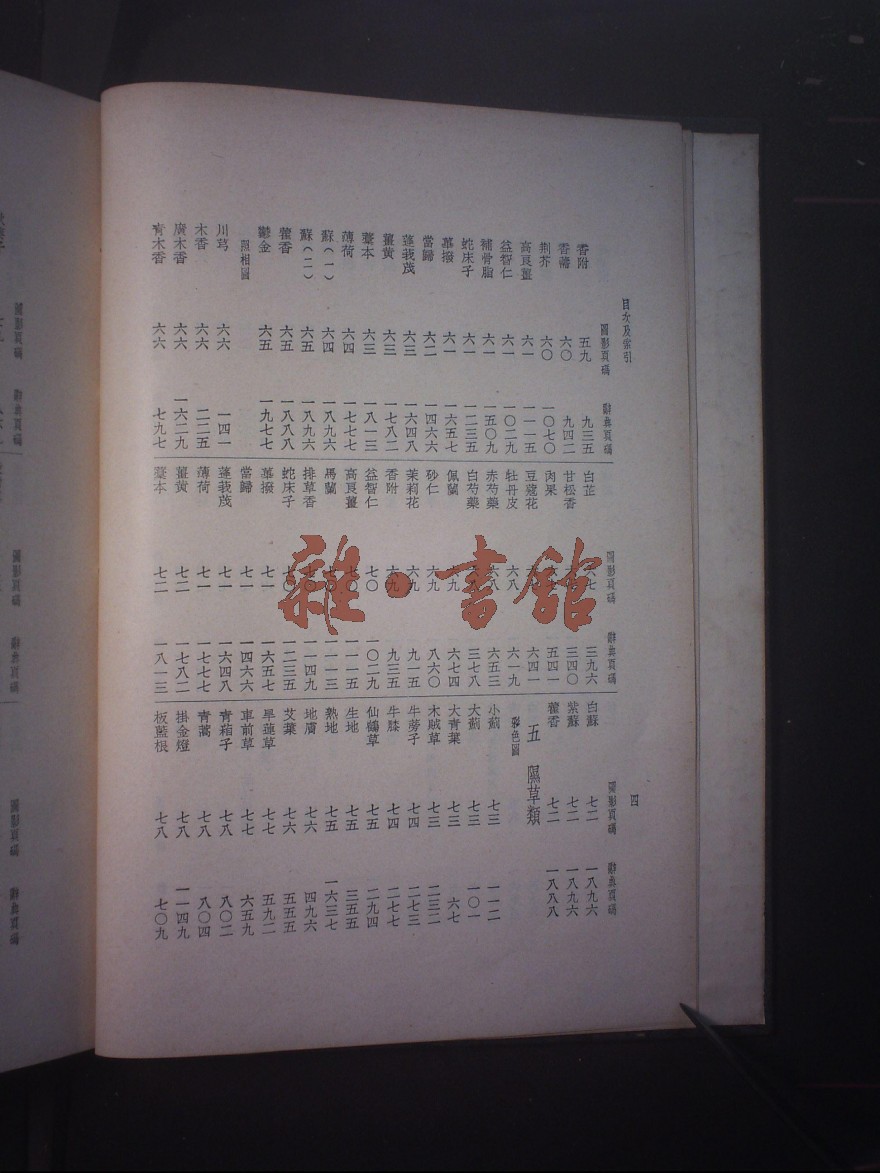 目次及索引
四
圖影頁碼 辭典頁碼
香附 五九 九三五
香薷 六〇 九四二
荆芥 六〇 一〇七〇
高良薑 六一 一一一五
益智仁 六一 一〇二九
補骨脂 六一 一五〇九
蛇床子 六一 一二三五
蓽撥 六一 一六五七
當歸 六二 一四六六
蓬莪茂 六三 一六四八
薑黄 六三 一七八二
藁本 六三 一八一三
薄荷 六四 一七七七
蘇(一) 六四 一八九六
蘇(二) 六五 一八九六
藿香 六五 一八八八
鬱金 六五 一九七七
照相圖
川芎 六六 一四一
木香 六六 二二五
廣木香 六六 一六二九
青木香 六六 七九七
圖影頁碼 辭典頁碼
白芷 六七 三九六
甘松香 三四〇
肉果 五四一
豆蔻花 六四一
牡丹皮 六八 六一九
赤芍藥 六八 六五三
白芍藥 三七八
佩蘭 六九 六七四
砂仁 六九 八六〇
茉莉花 六九 九一五
香附 六九 九三五
益智仁 七〇 一〇二九
高良薑 七〇 一一一五
馬蘭 七〇 一一一三
排草香 七〇 一一四九
蛇床子 七〇 一二三五
蓽撥 七一 一六五七
當歸 七一 一四六六
蓬莪茂 七一 一六四八
薄荷 七一 一七七七
薑黄 七二 一七八二
藁本 七二 一八一三
圖影頁碼 辭典頁碼
白蘇 七二 一八九六
紫蘇 七二 一八九六
藿香 七二 一八八八
五 隰草類
彩色圖
小薊 七三 一一二
大薊 七三 一〇一
大青葉 七三 六七
木賊草 七三 二三二
牛蒡子 七四 二七三
牛膝 七四 二七七
仙鶴草 七五 二九四
生地 七五 三五五
熟地 七五 一六三七
地膚 七六 四九六
艾葉 七六 五五五
旱蓮草 七七 五九二
車前草 七七 六五九
青葙子 七八 八〇二
青蒿 七八 八〇四
掛金燈 七八 一一四九
板藍根 七八 七〇九
雜·書館